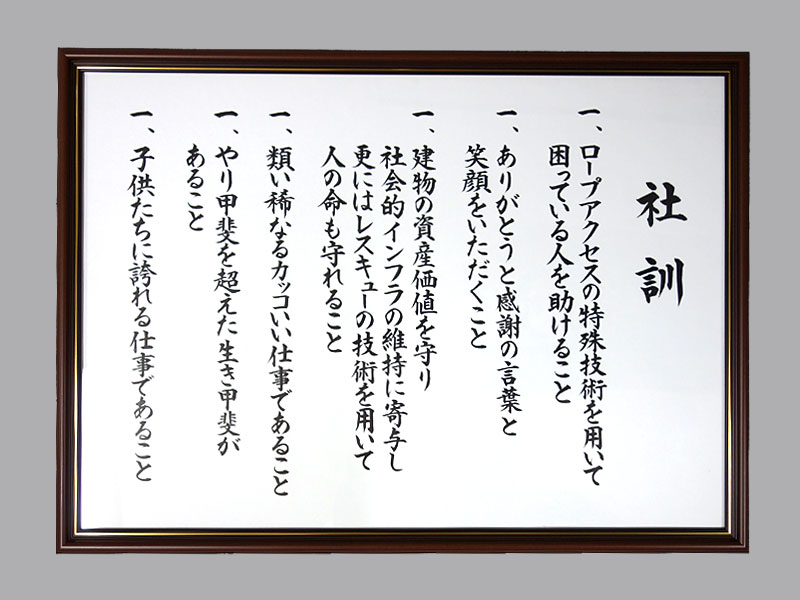 社訓
一、ロープアクセスの特殊技術を用いて
困っている人を助けること
一、ありがとうと感謝の言葉と
笑顔をいただくこと
一、建物の資産価値を守り
社会的インフラの維持に寄与し
更にはレスキューの技術を用いて
人の命も守れること
一、類い稀なるカッコいい仕事であること
一、やり甲斐を超えた生き甲斐が
あること
一、子供たちに誇れる仕事であること